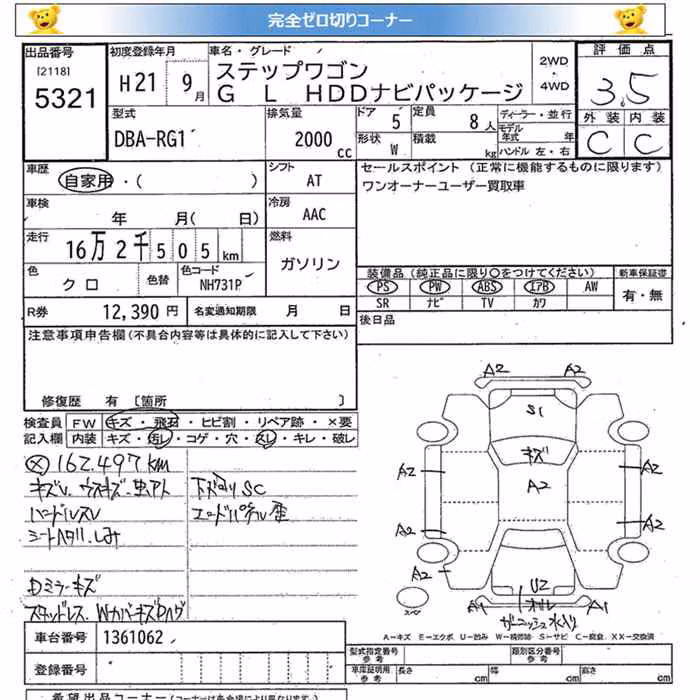 完全ゼロ切りコーナー
出品番号
[2118]
5321
初度登録年月
H21 9月
車名・グレード
ステップワゴン
G L HDDナビパッケージ
2WD
・
4WD
評価点
3.5
外装 内装
C C
型式
DBA-RG1
排気量
2000 cc
ドア 5
定員 8人
形状 W
積載 kg
ディーラー・並行
モデル年式 年
ハンドル 左・右
車歴
自家用・( )
シフト
AT
車検
年 月( 日)
冷房
AAC
走行
16万2千505km
燃料
ガソリン
色
クロ
色替
色コード
NH731P
R券 12,390円
名変通知期限 月 日
セールスポイント (正常に機能するものに限ります)
ワンオーナーユーザー買取車
装備品(純正品に限り○をつけてください)
新車保証書
PS PW ABS エアB AW
SR ナビ TV カワ
有・無
後日品
注意事項申告欄(不具合内容等は具体的に記入して下さい)
修復歴 有 [箇所 ]
検査員
記入欄
FW キズ・飛石・ヒビ割・リペア跡・×要
内装 キズ・汚レ・コゲ・穴・スレ・キレ・破レ
162.497km
キズ、ウスキズ、虫アト
ハンドルスレ
シートヘタリ、しみ
下ズマリ SC
Dミラーキズ
スタッドレス、WカバーキズDハゲ
車台番号 1361062
登録番号
希望出品コーナー
A2 A2
S1
キズ
A2 A2 A2
A2 A2
A2
U2
A1 オレ A1
スペア
ガーニッシュ水入り
A-キズ E-エクボ U-凹み W-補修跡 S-サビ C-腐食 XX-交換済
型式指定番号
参考
類別区分番号
参考
車庫証明用
参考
長さ cm 幅 cm 高さ cm